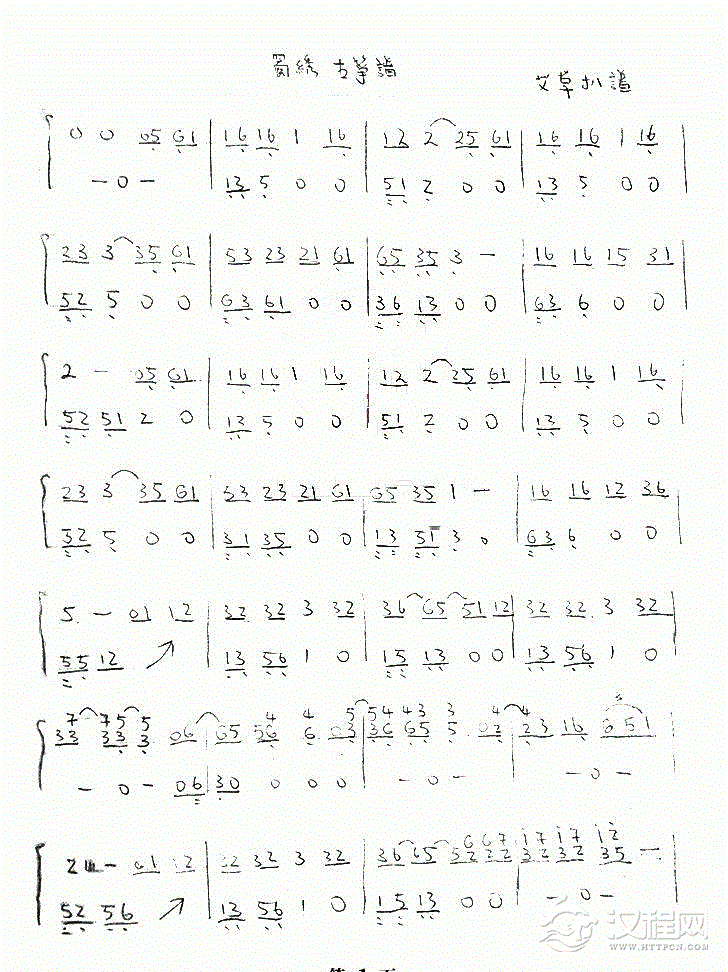 蜀绣 古筝譜
艾草扒譜
0 0 05 61 | 16 16 1 16 | 12 2 25 61 | 16 16 1 16
-0- | 13 5 0 0 | 51 2 0 0 | 13 5 0 0
23 3 35 61 | 53 23 21 61 | 65 35 3 - | 16 16 15 31
52 5 0 0 | 63 61 0 0 | 36 13 0 0 | 63 6 0 0
2 - 05 61 | 16 16 1 16 | 12 2 25 61 | 16 16 1 16
52 51 2 0 | 13 5 0 0 | 51 2 0 0 | 13 5 0 0
23 3 35 61 | 53 23 21 61 | 65 35 1 - | 16 16 12 36
52 5 0 0 | 31 35 0 0 | 13 51 3 0 | 63 6 0 0
5 - 01 12 | 32 32 3 32 | 36 65 51 12 | 32 32 3 32
55 12 ↗ | 13 56 1 0 | 15 13 0 0 | 13 56 1 0
7 75 5 4 4 5 54 43 3 4 4
33 33 3 06 | 65 56 6 03 | 36 65 5 02 | 23 16 651
-0- 06 | 30 0 0 0 | -0- | -0-
6 67 17 17 12
2 - 01 12 | 32 32 3 32 | 36 65 52 32 | 32 32 35 -
52 56 ↗ | 13 56 1 0 | 15 13 0 0 | -0-
汉程网
HTTPCN.COM